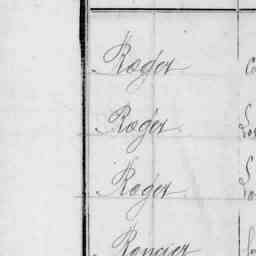 Roger
Roger
Roger
Rongier